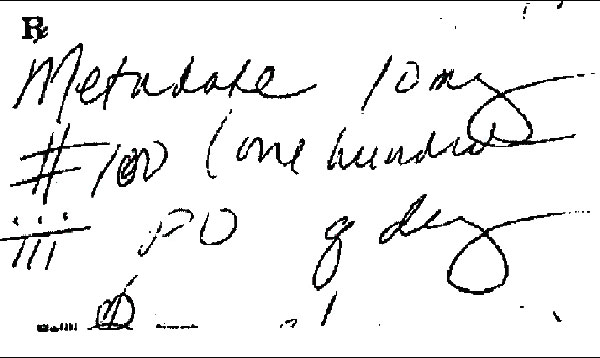 ℞
Metadate 10mg
#100 (one hundred
iii PO q day